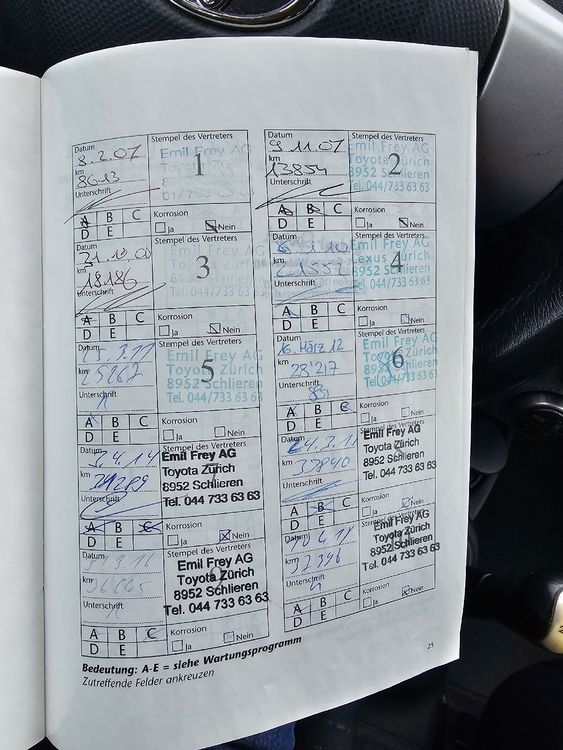 Datum
8.2.07
km
8613
Unterschrift
Stempel des Vertreters
Emil Frey AG
1
A B C
D E
Korrosion
Ja Nein
Datum
9.11.07
km
13854
Unterschrift
Stempel des Vertreters
Emil Frey AG
Toyota Zürich
8952 Schlieren
Tel. 044/733 63 63
2
A B C
D E
Korrosion
Ja Nein
Datum
km
18186
Unterschrift
Stempel des Vertreters
3
A B C
D E
Korrosion
Ja Nein
Datum
km
Unterschrift
Stempel des Vertreters
Emil Frey AG
Lexus Zürich
8952 Schlieren
Tel. 044/733 63 63
4
A B C
D E
Korrosion
Ja Nein
Datum
km
25267
Unterschrift
Stempel des Vertreters
Emil Frey AG
Toyota Zürich
8952 Schlieren
Tel. 044/733 63 63
5
A B C
D E
Korrosion
Ja Nein
Datum
16. März 12
km
28'217
Unterschrift
Stempel des Vertreters
Emil Frey AG
Toyota Zürich
8952 Schlieren
Tel. 044/733 63 63
6
A B C
D E
Korrosion
Ja Nein
Datum
3.4.14
km
Unterschrift
Stempel des Vertreters
Emil Frey AG
Toyota Zürich
8952 Schlieren
Tel. 044 733 63 63
A B C
D E
Korrosion
Ja Nein
Datum
km
Unterschrift
Stempel des Vertreters
Emil Frey AG
Toyota Zürich
8952 Schlieren
Tel. 044 733 63 63
A B C
D E
Korrosion
Ja Nein
Datum
km
Unterschrift
Stempel des Vertreters
Emil Frey AG
Toyota Zürich
8952 Schlieren
Tel. 044 733 63 63
A B C
D E
Korrosion
Ja Nein
Datum
km
Unterschrift
Stempel des Vertreters
Emil Frey AG
Toyota Zürich
8952 Schlieren
Tel. 044 733 63 63
A B C
D E
Korrosion
Ja Nein
Bedeutung: A-E = siehe Wartungsprogramm
Zutreffende Felder ankreuzen
25